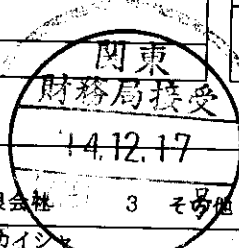 関東
財務局接受
14.12.17
限会社 3 その他
カイシャ